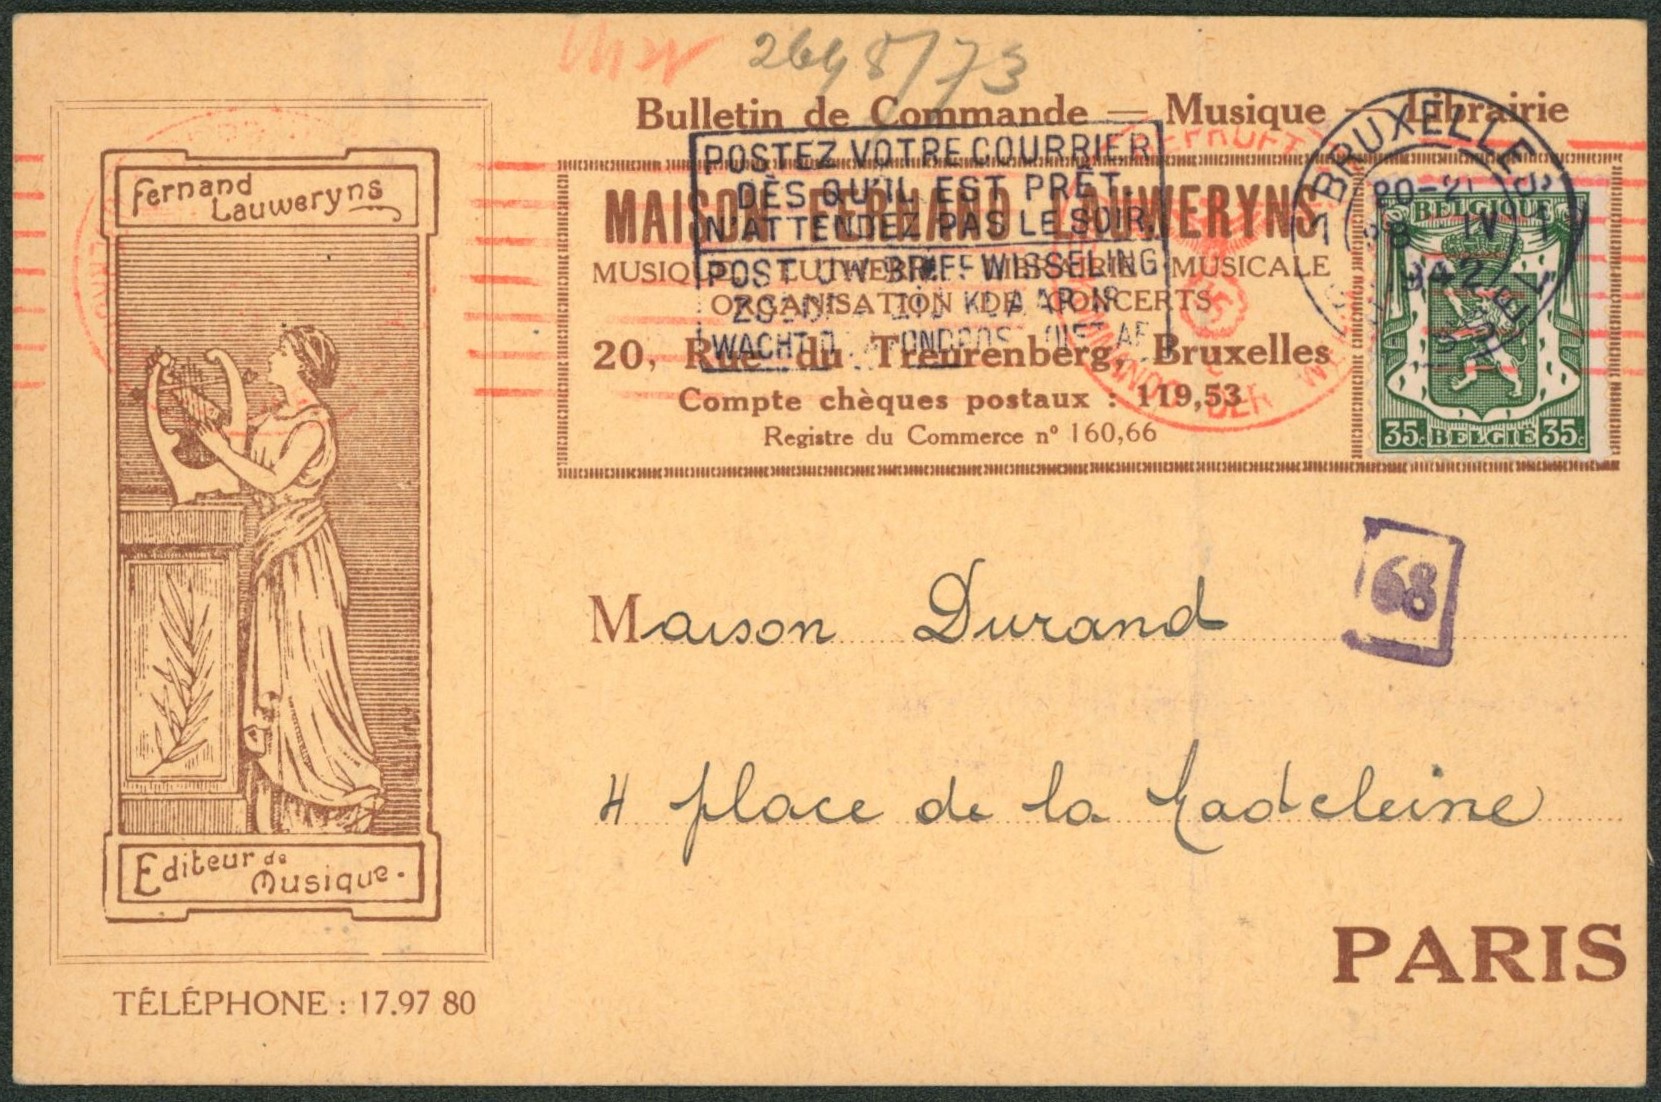 2648/73
Bulletin de Commande — Musique — Librairie
Fernand
Lauweryns
MAISON FERNAND LAUWERYNS
MUSIQUE LUTHERIE LIBRAIRIE MUSICALE
ORGANISATION DE CONCERTS
20, Rue du Treurenberg, Bruxelles
Compte chèques postaux : 119,53
Registre du Commerce n° 160,66
POSTEZ VOTRE COURRIER
DÈS QU'IL EST PRÊT.
N'ATTENDEZ PAS LE SOIR.
POST UW BRIEFWISSELING
KLAAR IS
WACHT
BRUXELLES 1
20-21
IV
BRUSSEL
BELGIQUE
35c BELGIE 35c
GEPRÜFT
68
Maison Durand
4 place de la Madeleine
PARIS
Editeur de
Musique.
TÉLÉPHONE : 17.97 80